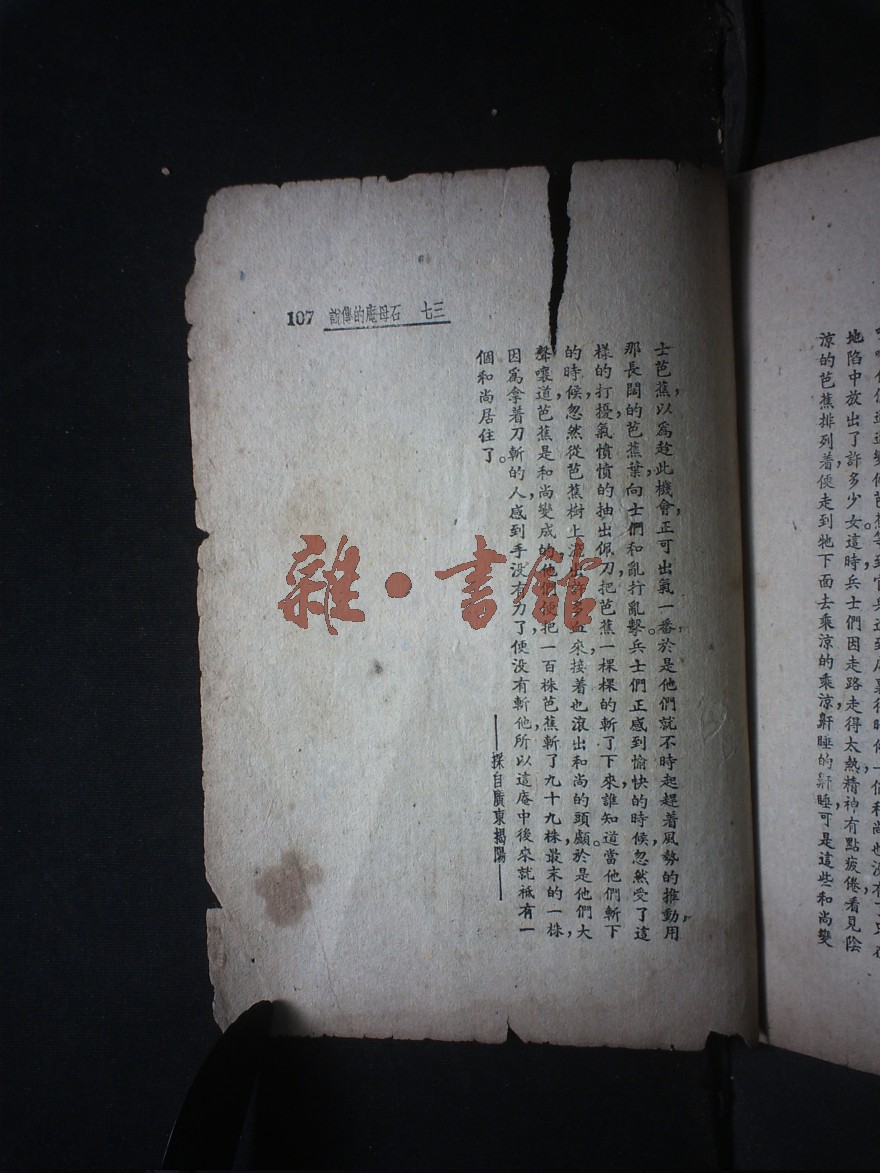 地陷中放出了許多少女。這時兵士們因走路走得太熱，精神有點疲倦，看見陰
涼的芭蕉排列着，便走到牠下面去乘涼的乘涼，鼾睡的鼾睡，可是這些和尚變
三七　石母庵的傳說　107
士芭蕉，以爲趁此機會，正可出氣一番，於是他們就不時起趕着風勢的推動，用
那長闊的芭蕉葉，向士們和亂行亂擊。兵士們正感到愉快的時候，忽然受了這
樣的打擾，氣憤憤的抽出佩刀，把芭蕉一棵棵的斬了下來。誰知道當他們斬下
的時候，忽然從芭蕉樹上流出許多血來，接着也滾出和尚的頭顱，於是他們大
聲嚷道，芭蕉是和尚變成的，他們便把一百株芭蕉，斬了九十九株，最末的一株，
因爲拿着刀斬的人，感到手沒有力了，便沒有斬他，所以這庵中後來就祗有一
個和尚居住了。
——採自廣東揭陽——
雜·書館